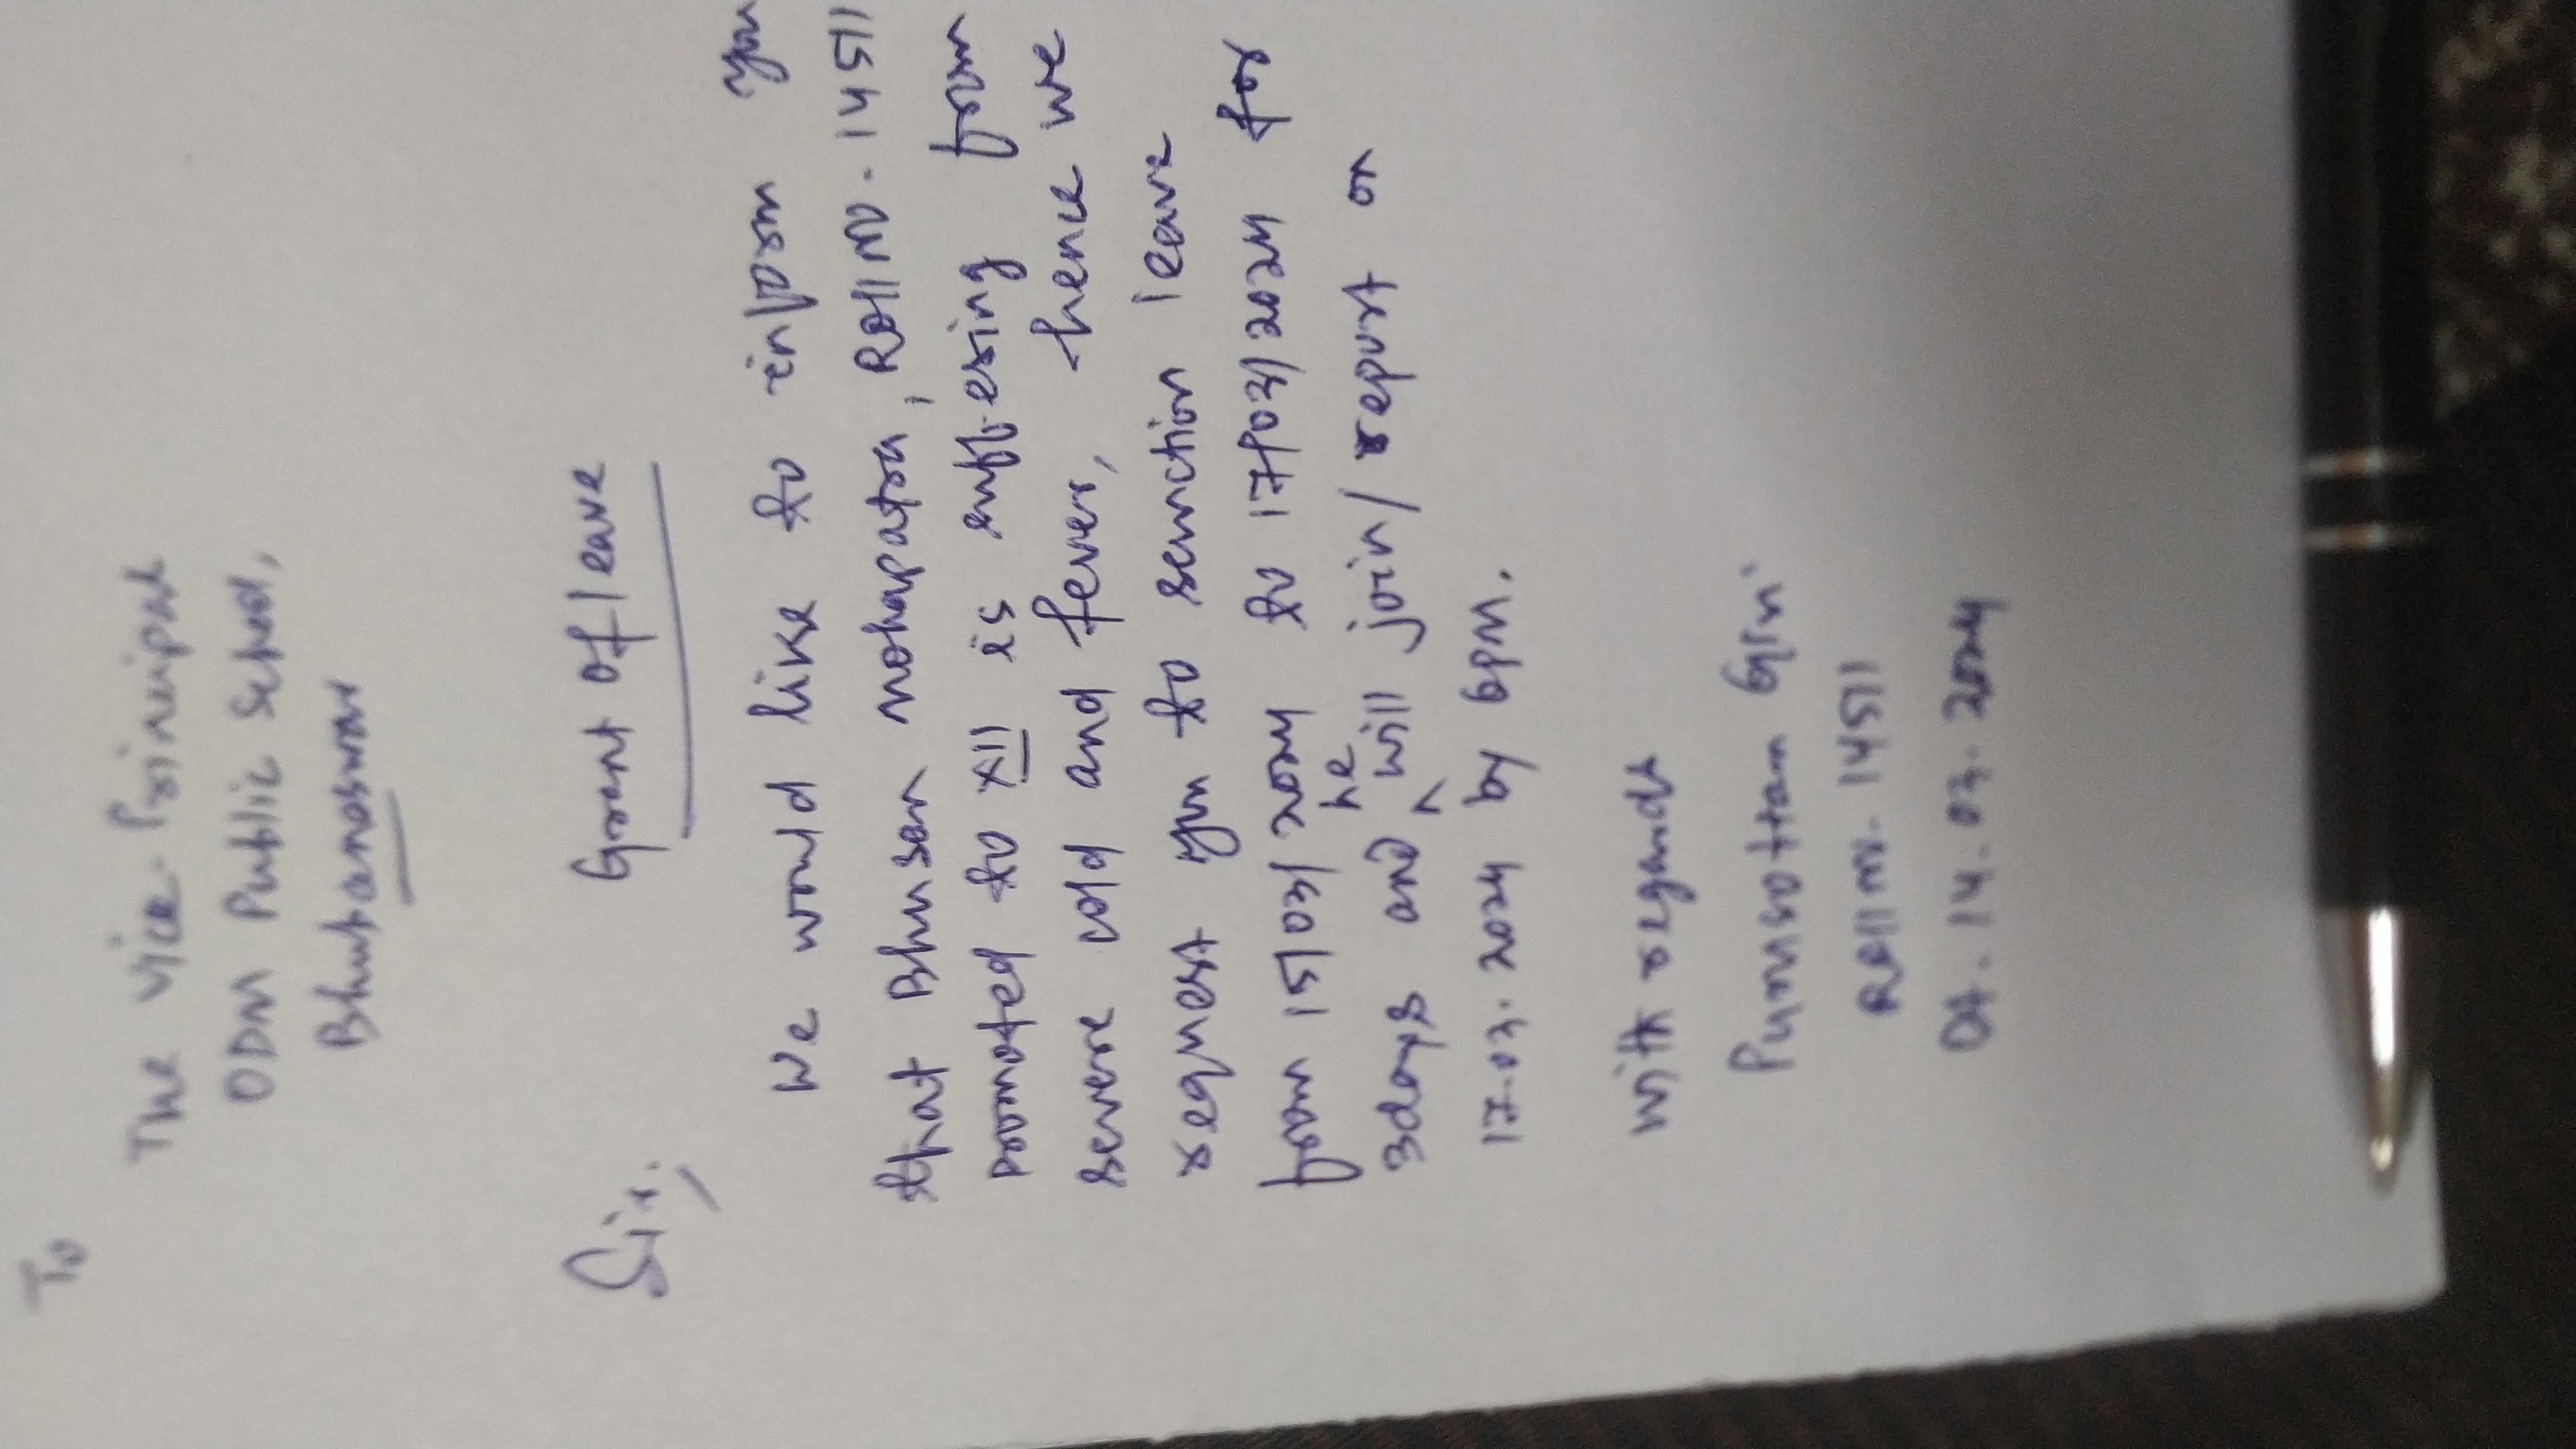 To
The Vice-Principal
ODM Public School,
Bhubaneswar
Grant of leave
Sir,
We would like to inform you
that Bhusan Mohapatra, Roll No. 14511
promoted to XII is suffering from
severe cold and fever, hence we
request you to sanction leave
from 15/03/2024 to 17/03/2024 for
3days and he will join/report on
17.03.2024 by 6pm.
with regards
Purusottam Giri.
Roll No. 14511
Dt. 14.03.2024